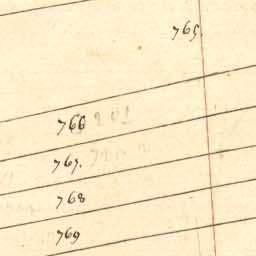 765.
766
767.
768
769